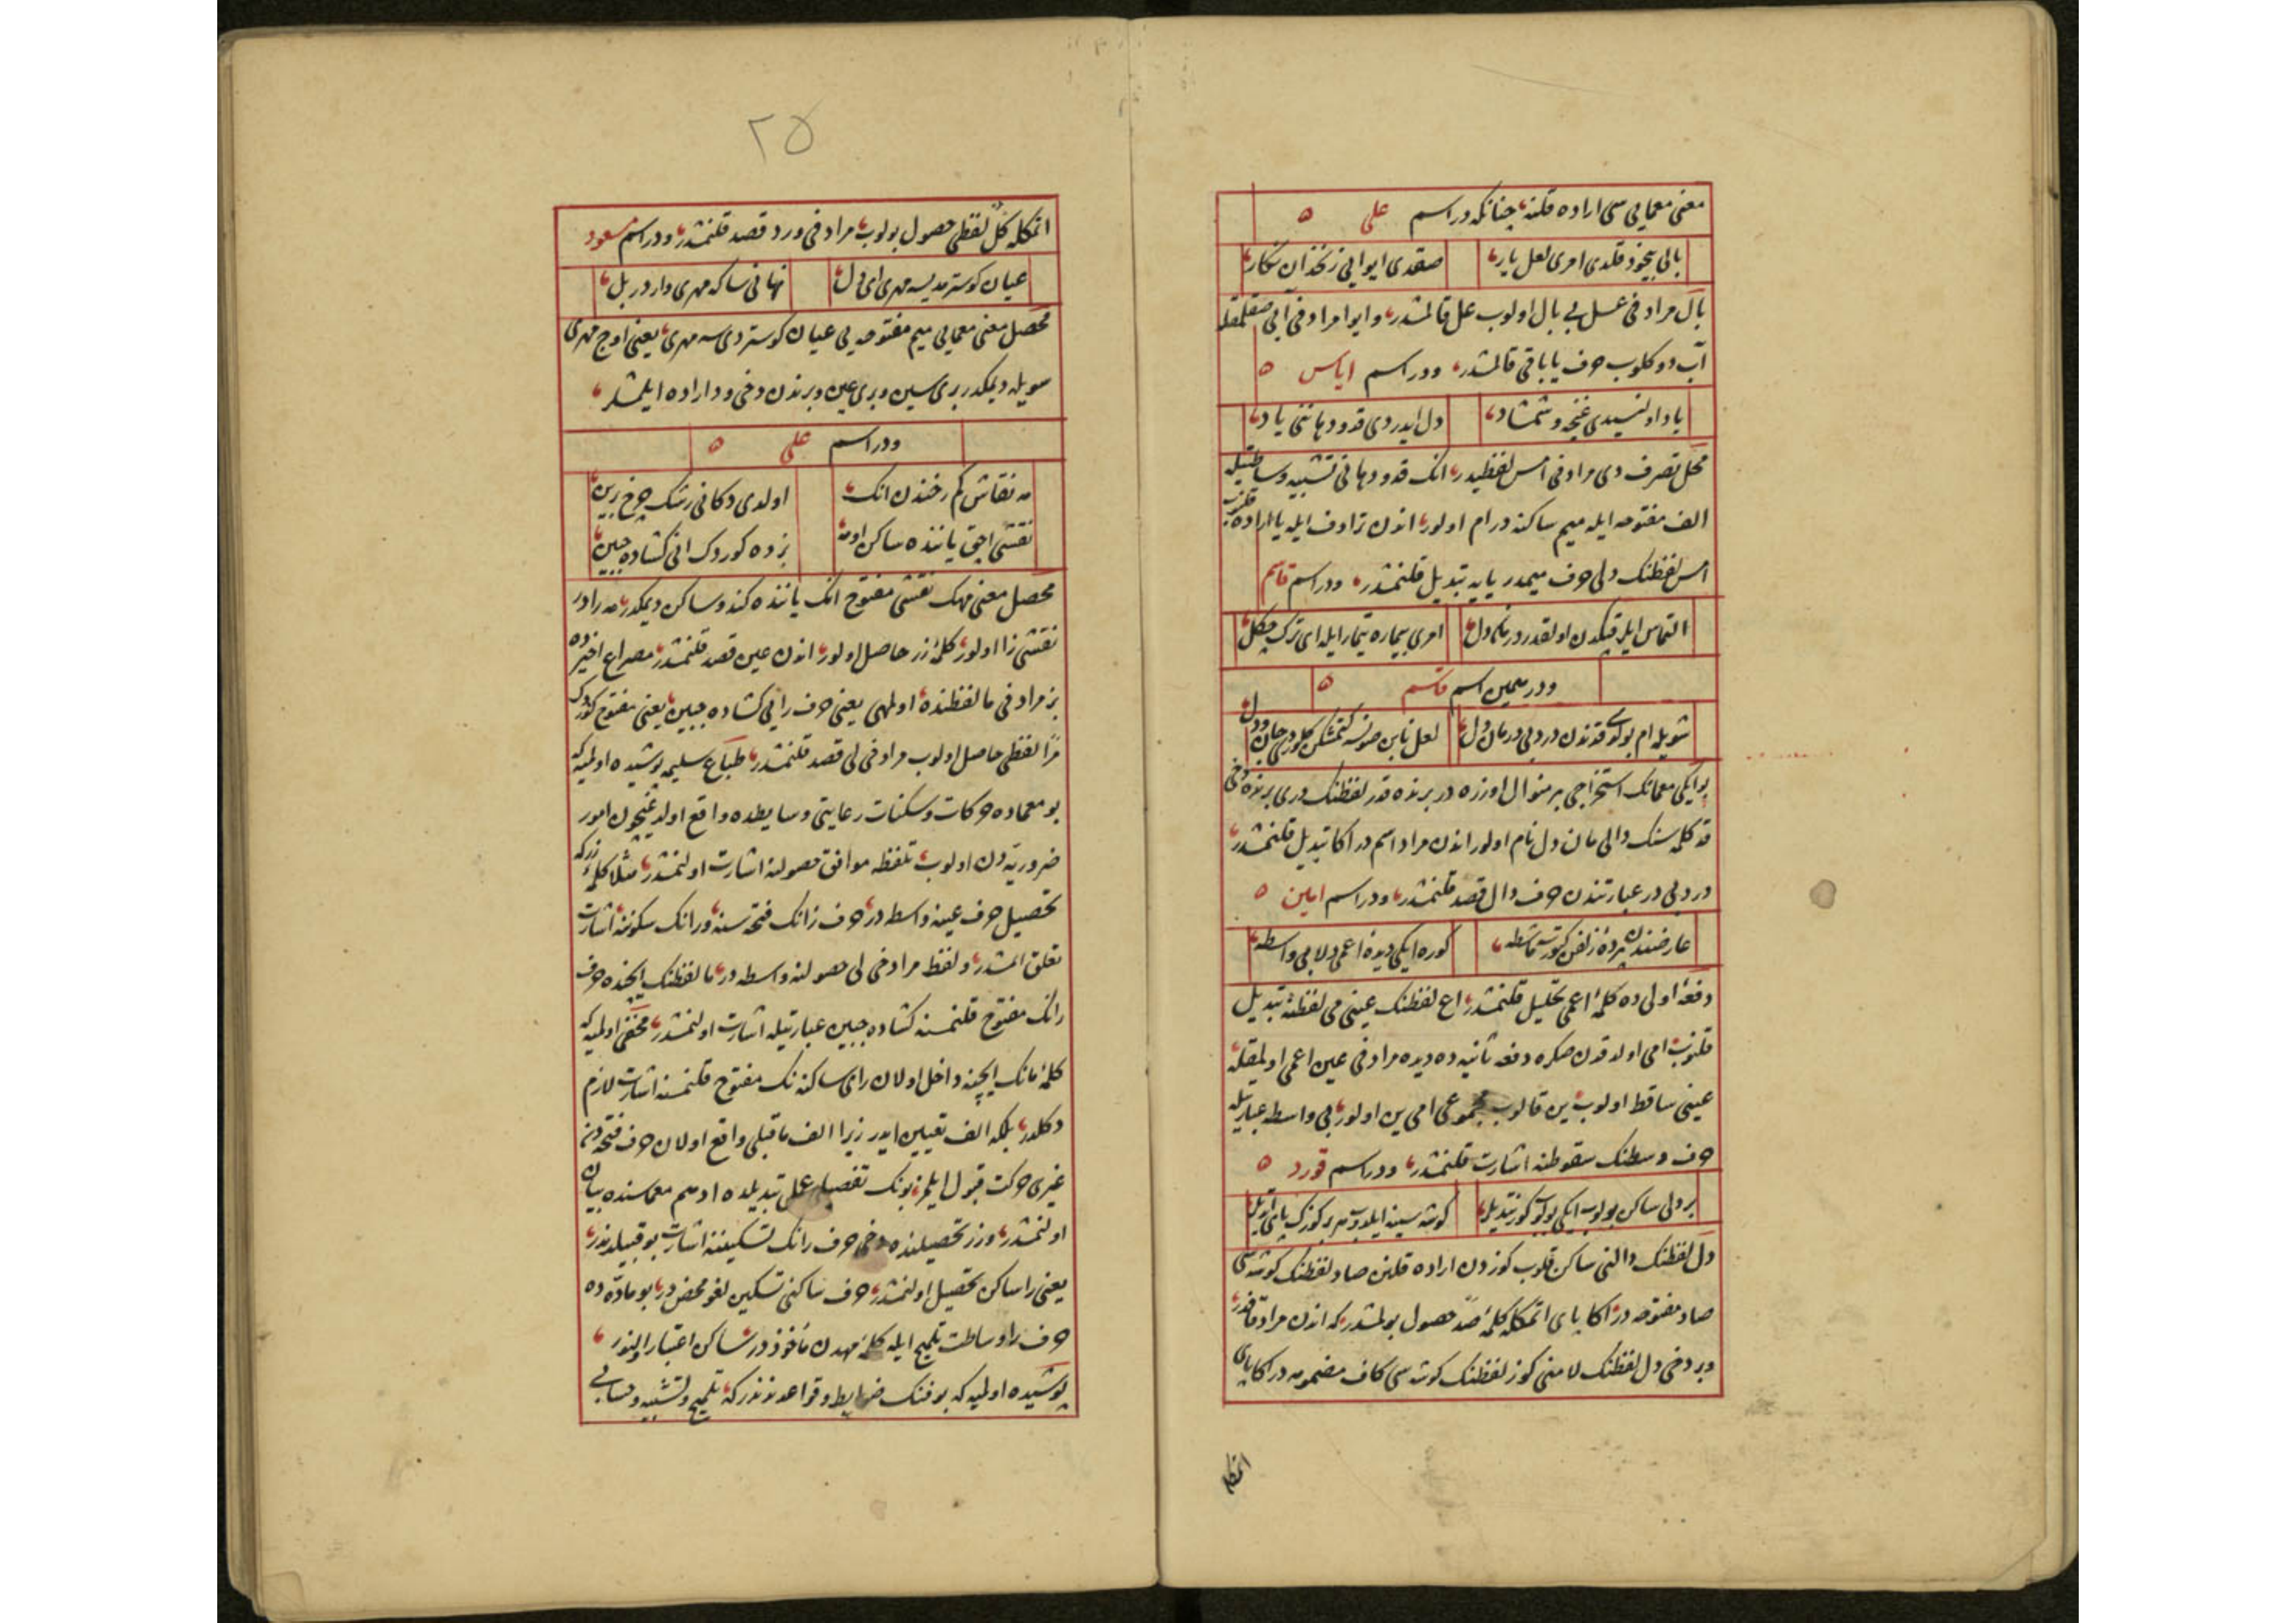 معنی معمایی سی اراده قلنه چنانکه در اسم علی ه
بالی بیخود قلدی امری لعل یار صقدی ایوایی زنخدان نگار
بال مرادفی عسل بی بال اولوب عل قالمشدر وایوا مرادفی آبی صقلمقله
آب دوکلوب حرف یا باقی قالمشدر ودر اسم ایاس ه
یاد اولنسیدی غنچه وشمشاد دل ایدردی قد ودهاننی یاد
محل تصرف دی مرادفی امس لفظیدر انک قد ودهانی تشبیه وساطتیله
الف مفتوحه ایله میم ساکنه در ام اولور اندن ترادف ایله یا اراده قلنوب
امس لفظنک دلی حرف میمدر یایه تبدیل قلنمشدر ودر اسم قاسم
التماس ایلر اولقدر در دل امری بیماره تیمار ایله ای ترک چکل
ودر همین اسم قاسم ه
شویله ام بوکون قدندن دردلی درمان دل لعل نابن صونسه کلور جان ودل
بو ایکی معمانک استخراجی بر منوال اوزره در برنده قدر لفظنک دری برنده دخی
قد کلمه سنک دالی مان دل نام اولور اندن مراد اسم در اکا تبدیل قلنمشدر
دردلی در عبارتندن حرف دال قصد قلنمشدر ودر اسم امین ه
عارضندن پرده زلفن کوتر مشاطه کوره ایکی دیده اعمی دلا بی واسطه
دفعه اولی ده کلمه اعمی تحلیل قلنمشدر اع لفظنک عینی می لفظنه تبدیل
قلنوب امی اولدقدن صکره دفعه ثانیه ده دیده مرادفی عین اعمی اولمقله
عینی ساقط اولوب ین قالوب مجموعی امی ین اولور بی واسطه عبارتیله
حرف وسطنک سقوطنه اشارت قلنمشدر ودر اسم قورد ه
بر دلی ساکن بولوب ایکی کوز تبدیل کوشه سینه ایلدیب هر بر کوزک پای
دل لفظنک دالنی ساکن قلوب کوزدن اراده قلنن صاد لفظنک کوشه سی
صاد مفتوحه در اکا پای اتمکله کلمه صد حصول بولمشدر که اندن مراد قافدر
وبر دخی دل لفظنک لامنی کوز لفظنک کوشه سی کاف مضمومه در اکا پای
اتمکله
٢٥
اتمکله کل لفظی حصول بولوب مرادفی ورد قصد قلنمشدر ودر اسم مسعود
عیان کوسترمدیسه مهری ای دل نهانی ساکه مهری واردر بل
محصل معنی معمایی میم مفتوحه یی عیان کوستردی سه مهری یعنی اوچ مهری
سویله دیمکدر بری سین وبری عین وبرندن دخی ود اراده ایلمشلر
ودر اسم علی ه
مه نقاش کم رخندن انک اولدی دکانی رشک چرخ برین
نقشی اچق یاننده ساکن اوله بزده کوردک انی کشاده جبین
محصل معنی مهک نقشی مفتوح انک یاننده کندو ساکن دیمکدر مه را در
نقشی زا اولور کلمه زر حاصل اولور اندن عین قصد قلنمشدر مصراع اخیرده
بز مرادفی ما لفظنده اولمهی یعنی حرف رایی کشاده جبین یعنی مفتوح کوردک
مرا لفظی حاصل اولوب مرادفی لی قصد قلنمشدر طباع سلیمه پوشیده اولمیه که
بو معماده حرکات وسکنات رعایتی وسایطده واقع اولدیغیچون امور
ضروریه دن اولوب تلفظه موافق حصولنه اشارت اولنمشدر مثلا کلمه زرکه
تحصیل حرف عینه واسطه در حرف زانک فتحه سنه ورانک سکوننه اشارت
تعلق اتمشدر ولفظ مرادخی لی حصولنه واسطه در ما لفظنک ایچنده حرف
رانک مفتوح قلنمسنه کشاده جبین عبارتیله اشارت اولنمشدر مخفی اولمیه که
کلمه مانک ایچنه داخل اولان رای ساکنه نک مفتوح قلنمسنه اشارت لازم
دکلدر بلکه الف تعیین ایدر زیرا الف ماقبلی واقع اولان حرف فتحه دن
غیری حرکت قبول ایلمز بونک تفصیلی عمل تبدیلده ادهم معماسنده بیان
اولنمشدر وزر تحصیلنده دخی حرف رانک تسکیننه اشارت بو قبیلدندر
یعنی را ساکن تحصیل اولنمشدر حرف ساکنی تسکین لغو محضدر بو ماده ده
حرف را وساطت تلمیح ایله کلمه مهدن مأخوذدر ساکن اعتبار اولنور
پوشیده اولمیه که بو فنک ضوابط وقواعدندندر که تلمیح وتشبیه وحسابی